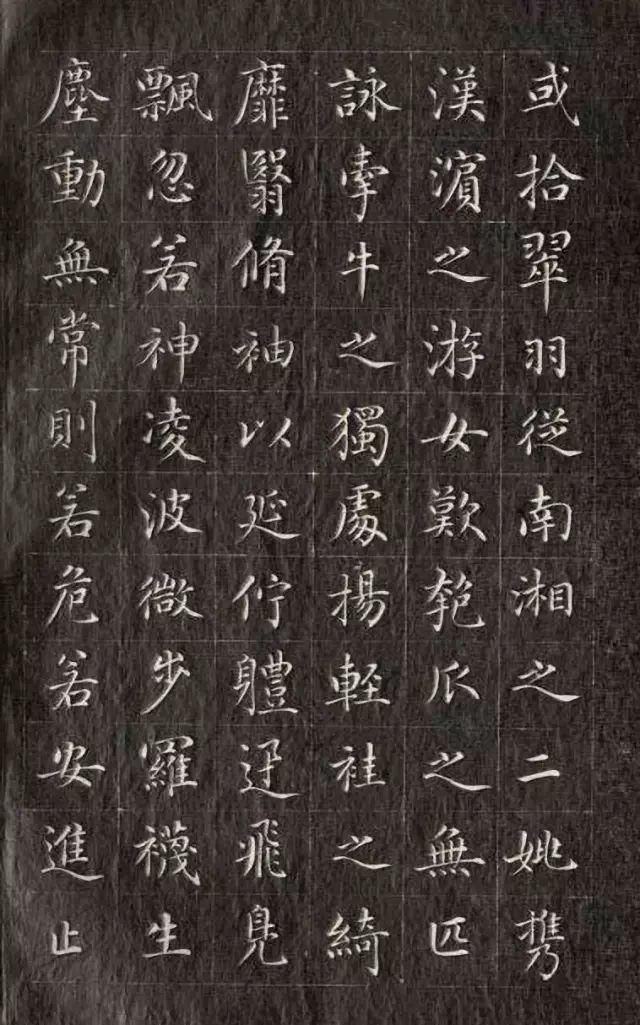 或拾翠羽從南湘之二姚攜
漢濵之游女歎匏瓜之無匹
詠牽牛之獨處揚輕袿之綺
靡翳脩袖以延佇體迅飛鳧
飄忽若神凌波微步羅襪生
塵動無常則若危若安進止